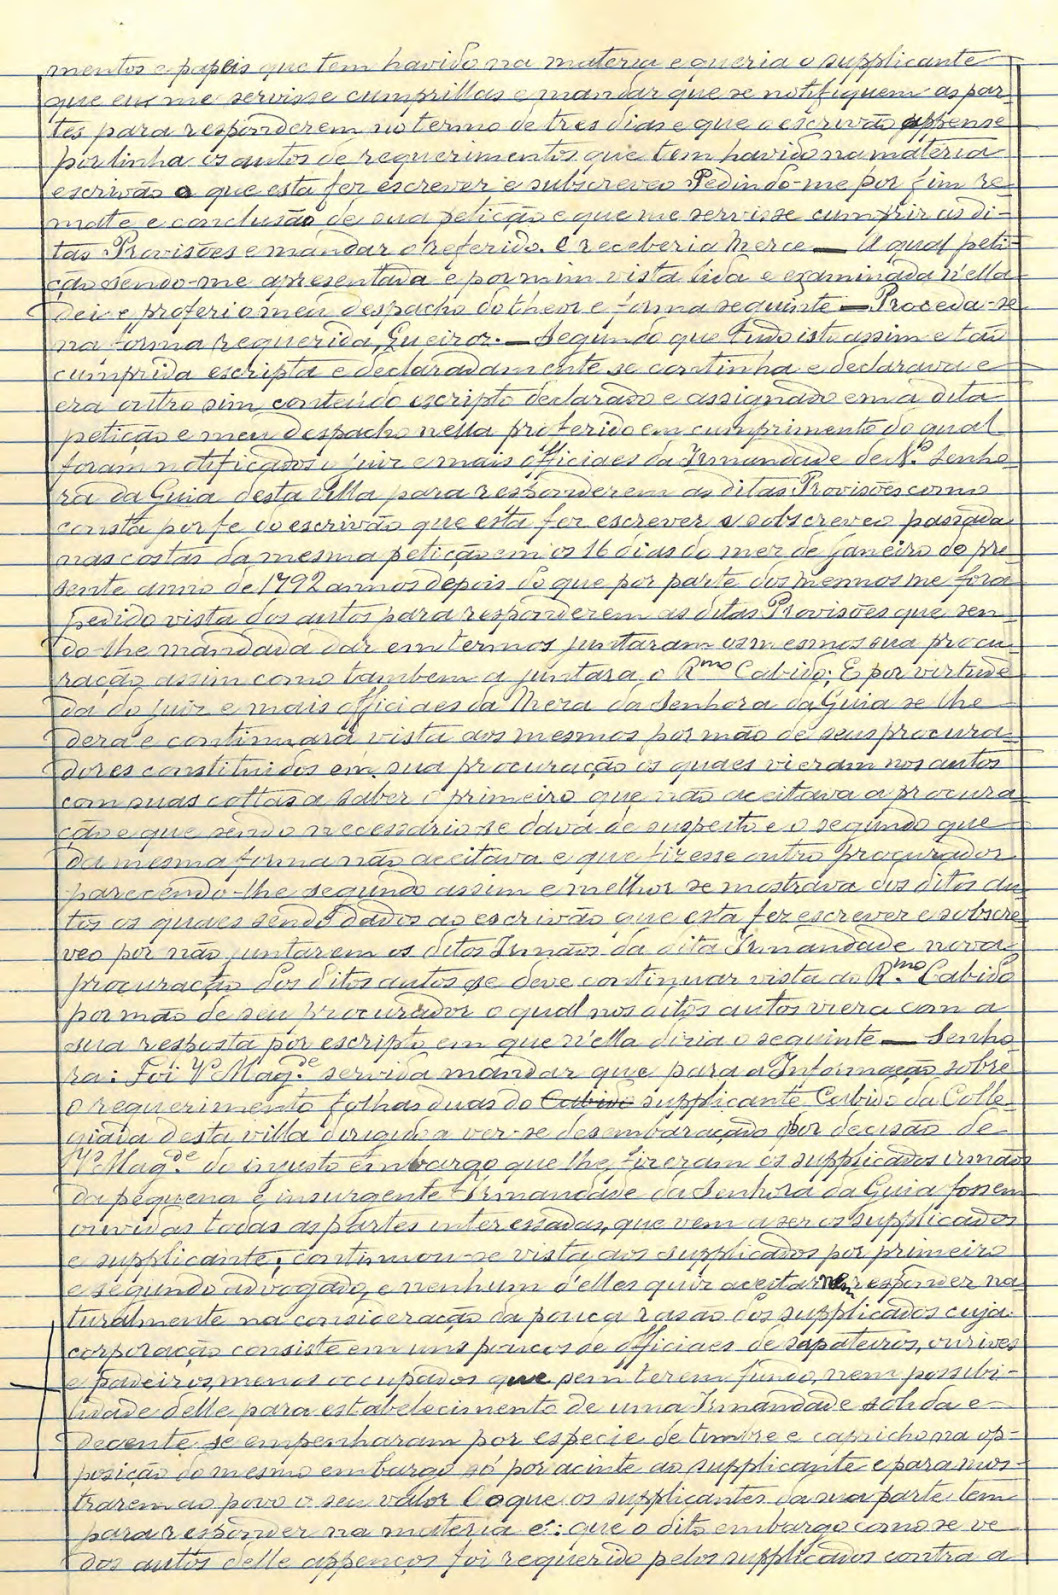 mentos e papeis que tem havido na materia e queria o supplicante
que eu me servisse cumprillas e mandar que se notifiquem as par-
tes para responderem no termo de tres dias e que o escrivão appense
por linha os autos de requerimentos que tem havido na materia
escrivão o que esta fez escrever e subscreveo Pedindo-me por fim re-
mate e conclusão de sua petição e que me servisse cumprir as di-
tas Provisões e mandar o referido. E receberia Merce — A qual peti-
ção sendo-me apresentada e por mim vista lida e examinada n'ella
dei e proferi o meu despacho do theor e forma seguinte — Proceda-se
na forma requerida, Queiroz. — Segundo que tudo isto assim e tão
cumprida escripta e declaradamente se continha e declarava e
era outro sim conteudo escripto declarado e assignado em a dita
petição e meu despacho nella proferido em cumprimento do qual
foram notificados o juiz e mais officiaes da Irmandade de N.ª Senho-
ra da Guia desta villa para responderem as ditas Provisões como
consta por fe do escrivão que esta fez escrever e sobscreveo passada
nas costas da mesma petição em os 16 dias do mez de Janeiro do pre-
sente anno de 1792 annos depois do que por parte dos mesmos me fora
pedido vista dos autos para responderem as ditas Provisões que sen-
do-lhe mandada dar em termos juntaram os mesmos sua procu-
ração assim como tambem a juntara o R.mo Cabido; E por virtude
da do juiz e mais officiaes da Meza da Senhora da Guia se lhe
dera e continuara vista aos mesmos por mão de seus procura-
dores constituidos em sua procuração os quaes vieram nos autos
com suas cottas a saber o primeiro que não aceitava a procura-
ção e que sendo necessario se dava de suspeito e o segundo que
da mesma forma não aceitava e que fizesse outro procurador
parecendo-lhe segundo assim e melhor se mostrava dos ditos au-
tos os quaes sendo dados ao escrivão que esta fez escrever e sobscre-
veo por não juntarem os ditos Irmãos da dita Irmandade nova
procuração dos ditos autos se deve continuar vista ao R.mo Cabido
por mão de seu Procurador o qual nos ditos autos viera com a
sua resposta por escripto em que n'ella dizia o seguinte — Senho-
ra: Foi V. Mag.de servida mandar que para a Informação sobre
o requerimento folhas duas do Cabido supplicante Cabido da Colle-
giada desta villa dirigido a ver-se desembaraçado por decisão de
V. Mag.de do injusto embargo que lhe fizeram os supplicados irmãos
da pequena e insurgente Irmandade da Senhora da Guia fossem
ouvidas todas as partes interessadas, que vem a ser os supplicados
e supplicante; continuou-se vista aos supplicados por primeiro
e segundo advogado, e nenhum d'elles quiz aceitar nem responder na-
turalmente na consideração da pouca rasão dos supplicados cuja
corporação consiste em uns poucos de officiaes de sapateiros, ourives
e padeiros, menos occupados que sem terem fundo, nem possibi-
lidade delle para estabelecimento de uma Irmandade solida e
decente se empenharam por especie de timbre e capricho na op-
posição do mesmo embargo só por acinte ao supplicante e para mos-
trarem ao povo o seu valor. E o que os supplicantes da sua parte tem
para responder na materia é: que o dito embargo como se ve
dos autos delle appenços foi requerido pelos supplicados contra a